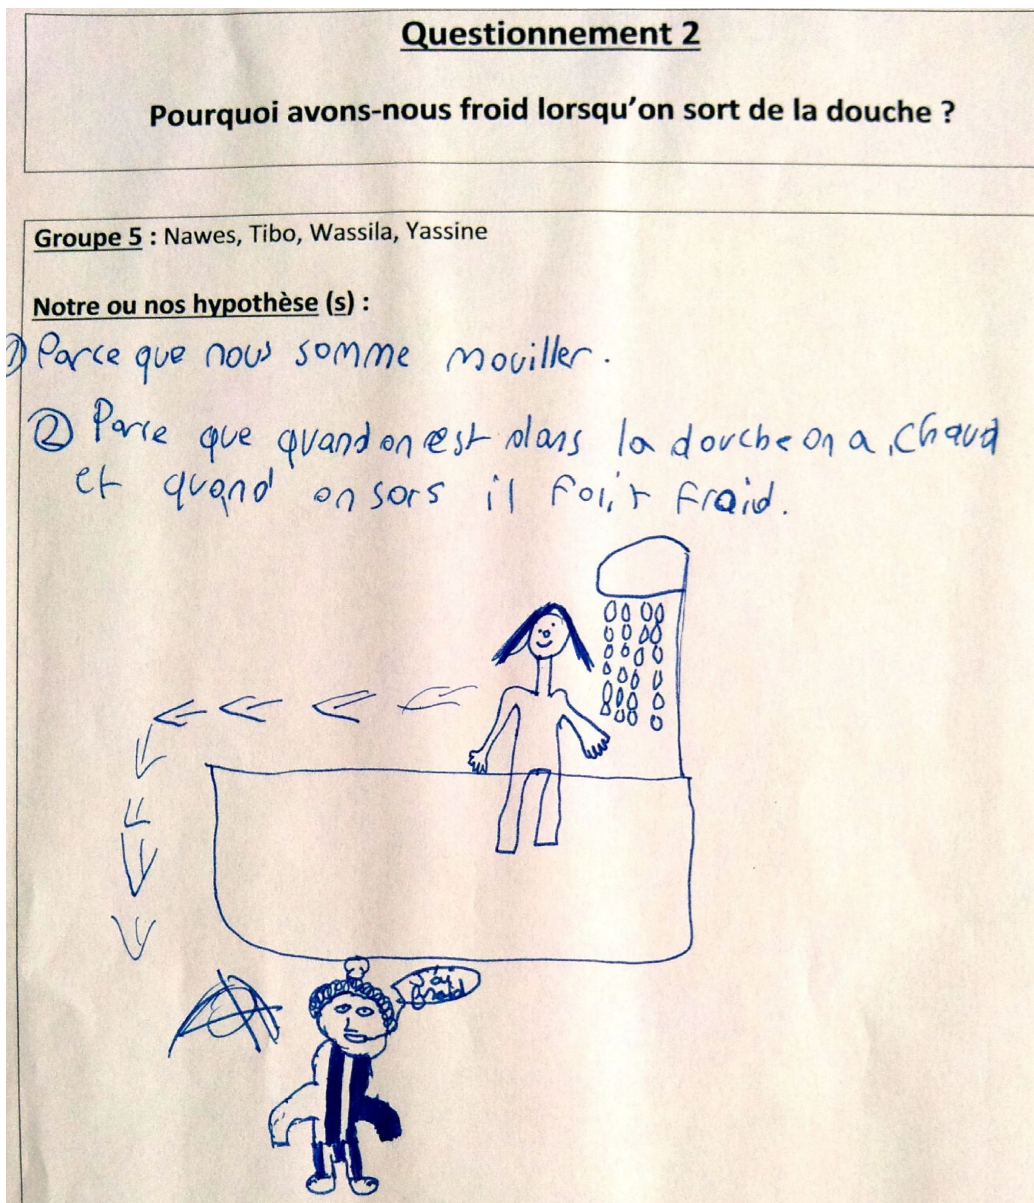 Questionnement 2
Pourquoi avons-nous froid lorsqu'on sort de la douche ?
Groupe 5 : Nawes, Tibo, Wassila, Yassine
Notre ou nos hypothèse (s) :
① Parce que nous somme mouiller.
② Parce que quand on est dans la douche on a chaud
et quand on sors il fait fraid.
J'ai
froid